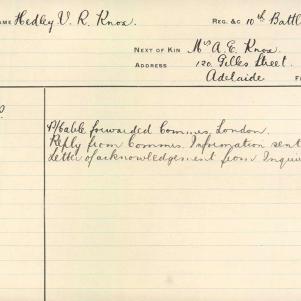 AME Hedley V. R. Knox. REG. &C 10th Battl
NEXT OF KIN Mrs A. E. Knox.
ADDRESS 120. Gilles Street.
Adelaide F
P/Cable forwarded Commrs, London.
Reply from Commrs. Information sent
Letter of acknowledgement from Inqui